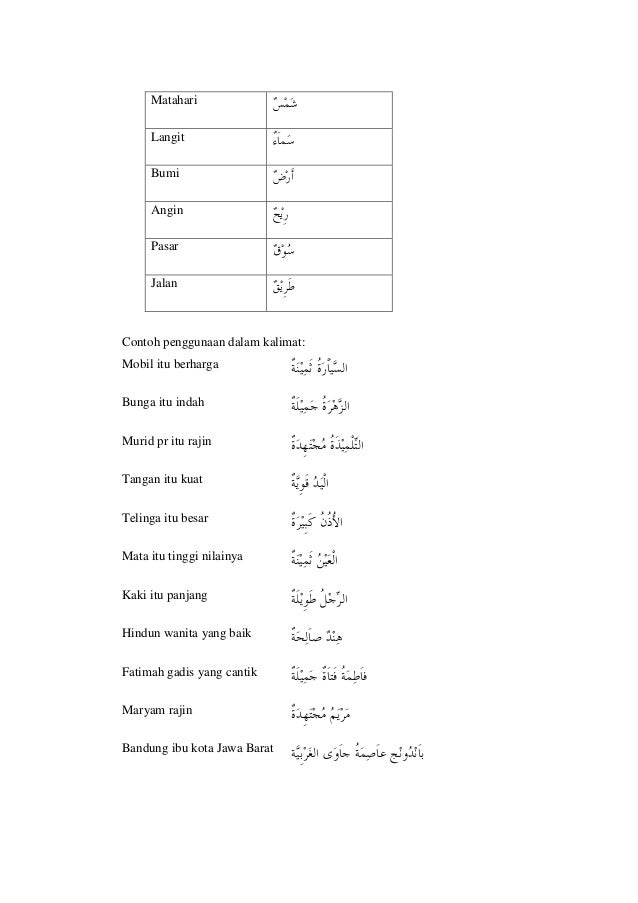 Matahari شَمْسٌ
Langit سَمَآءٌ
Bumi أَرْضٌ
Angin رِيْحٌ
Pasar سُوْقٌ
Jalan طَرِيْقٌ
Contoh penggunaan dalam kalimat:
Mobil itu berharga السَّيَّارَةُ ثَمِيْنَةٌ
Bunga itu indah الزَّهْرَةُ جَمِيْلَةٌ
Murid pr itu rajin التِّلْمِيْذَةُ مُجْتَهِدَةٌ
Tangan itu kuat الْيَدُ قَوِيَّةٌ
Telinga itu besar الأُذُنُ كَبِيْرَةٌ
Mata itu tinggi nilainya الْعَيْنُ ثَمِيْنَةٌ
Kaki itu panjang الرِّجْلُ طَوِيْلَةٌ
Hindun wanita yang baik هِنْدٌ صَالِحَةٌ
Fatimah gadis yang cantik فَاطِمَةُ فَتَاةٌ جَمِيْلَةٌ
Maryam rajin مَرْيَمُ مُجْتَهِدَةٌ
Bandung ibu kota Jawa Barat بَانْدُونْج عَاصِمَةُ جَاوَى الغَرْبِيَّة